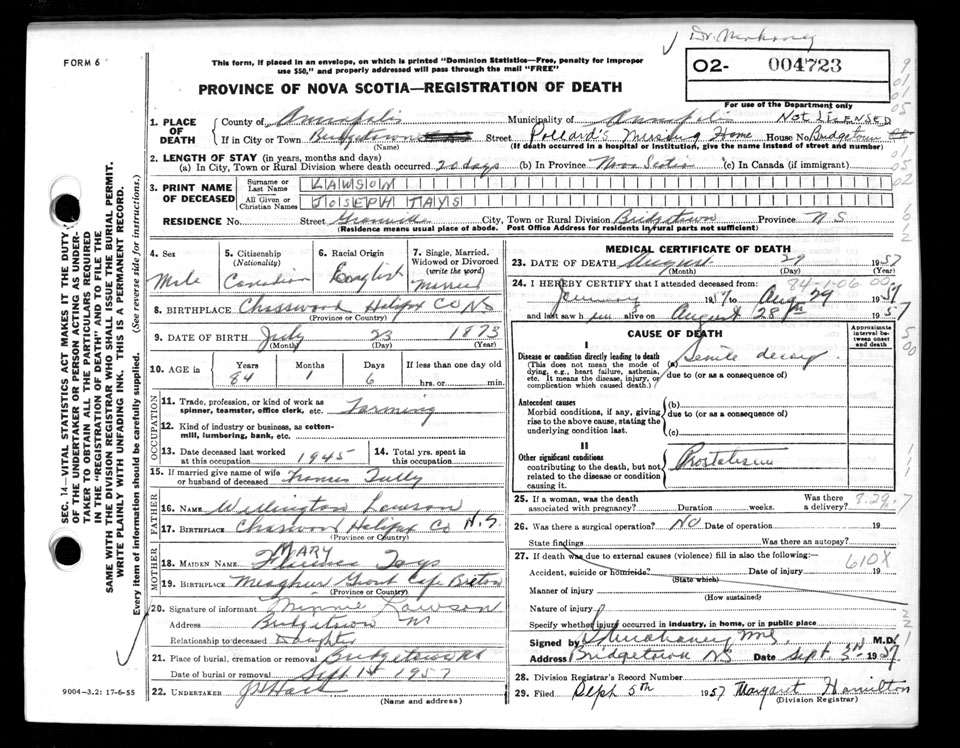 FORM 6
This form, if placed in an envelope, on which is printed "Dominion Statistics—Free, penalty for improper
use $50," and properly addressed will pass through the mail "FREE"
PROVINCE OF NOVA SCOTIA—REGISTRATION OF DEATH
Dr.
O2- 004723
For use of the Department only
1. PLACE OF DEATH
County of Annapolis Municipality of Annapolis NOT LICENSED
If in City or Town Bridgetown Street Pollard's Nursing Home House No Bridgetown
(Name) (If death occurred in a hospital or institution, give the name instead of street and number)
2. LENGTH OF STAY (in years, months and days)
(a) In City, Town or Rural Division where death occurred 20 days (b) In Province Nova Scotia (c) In Canada (if immigrant)
3. PRINT NAME OF DECEASED
Surname or Last Name LAWSON
All Given or Christian Names JOSEPH TAYS
RESIDENCE No. Street Granville City, Town or Rural Division Bridgetown Province N S
(Residence means usual place of abode. Post Office Address for residents in rural parts not sufficient)
4. Sex
Male
5. Citizenship (Nationality)
Canadian
6. Racial Origin
English
7. Single, Married, Widowed or Divorced (write the word)
Married
8. BIRTHPLACE Chasswood Halifax CO NS
(Province or Country)
9. DATE OF BIRTH July 23 1873
(Month) (Day) (Year)
10. AGE in
Years 84
Months 1
Days 6
If less than one day old
hrs. or min.
OCCUPATION
11. Trade, profession, or kind of work as spinner, teamster, office clerk, etc. Farming
12. Kind of industry or business, as cotton-mill, lumbering, bank, etc.
13. Date deceased last worked at this occupation 1945
14. Total yrs. spent in this occupation
15. If married give name of wife or husband of deceased Frances Tully
FATHER
16. NAME Wellington Lawson
17. BIRTHPLACE Chaswood Halifax Co N.S.
(Province or Country)
MOTHER
MARY
18. MAIDEN NAME Tays
19. BIRTHPLACE Cape Breton
(Province or Country)
20. Signature of informant Minnie Lawson
Address Bridgetown NS
Relationship to deceased Daughter
21. Place of burial, cremation or removal Bridgetown NS
Date of burial or removal Sept 1st 1957
22. UNDERTAKER
(Name and address)
MEDICAL CERTIFICATE OF DEATH
23. DATE OF DEATH August 29 1957
(Month) (Day) (Year)
84-1-06 00
24. I HEREBY CERTIFY that I attended deceased from:
January 1957 to Aug 29 1957
and last saw him alive on August 28th 1957
CAUSE OF DEATH
Approximate interval between onset and death
I
Disease or condition directly leading to death
(This does not mean the mode of dying, e.g., heart failure, asthenia, etc. It means the disease, injury, or complication which caused death.)
(a) Senile decay
due to (or as a consequence of)
Antecedent causes
Morbid conditions, if any, giving rise to the above cause, stating the underlying condition last.
(b)
due to (or as a consequence of)
(c)
II
Other significant conditions
contributing to the death, but not related to the disease or condition causing it.
Prostatism
25. If a woman, was the death associated with pregnancy? Duration weeks. Was there a delivery?
8.29-7
26. Was there a surgical operation? NO Date of operation 19
State findings Was there an autopsy?
27. If death was due to external causes (violence) fill in also the following:—
610X
Accident, suicide or homicide? Date of injury 19
(State which)
Manner of injury
(How sustained)
Nature of injury
Specify whether injury occurred in industry, in home, or in public place
Signed by M.D.
Address Bridgetown NS Date Sept. 3rd 1957
28. Division Registrar's Record Number
29. Filed Sept 5th 1957 Margaret Hamilton
(Division Registrar)
SEC. 14—VITAL STATISTICS ACT MAKES IT THE DUTY
OF THE UNDERTAKER OR PERSON ACTING AS UNDER-
TAKER TO OBTAIN ALL THE PARTICULARS REQUIRED
IN THE "REGISTRATION OF DEATH" AND TO FILE THE
SAME WITH THE DIVISION REGISTRAR WHO SHALL ISSUE THE BURIAL PERMIT.
WRITE PLAINLY WITH UNFADING INK. THIS IS A PERMANENT RECORD.
Every item of information should be carefully supplied. (See reverse side for instructions.)
9004-3.2: 17-6-55